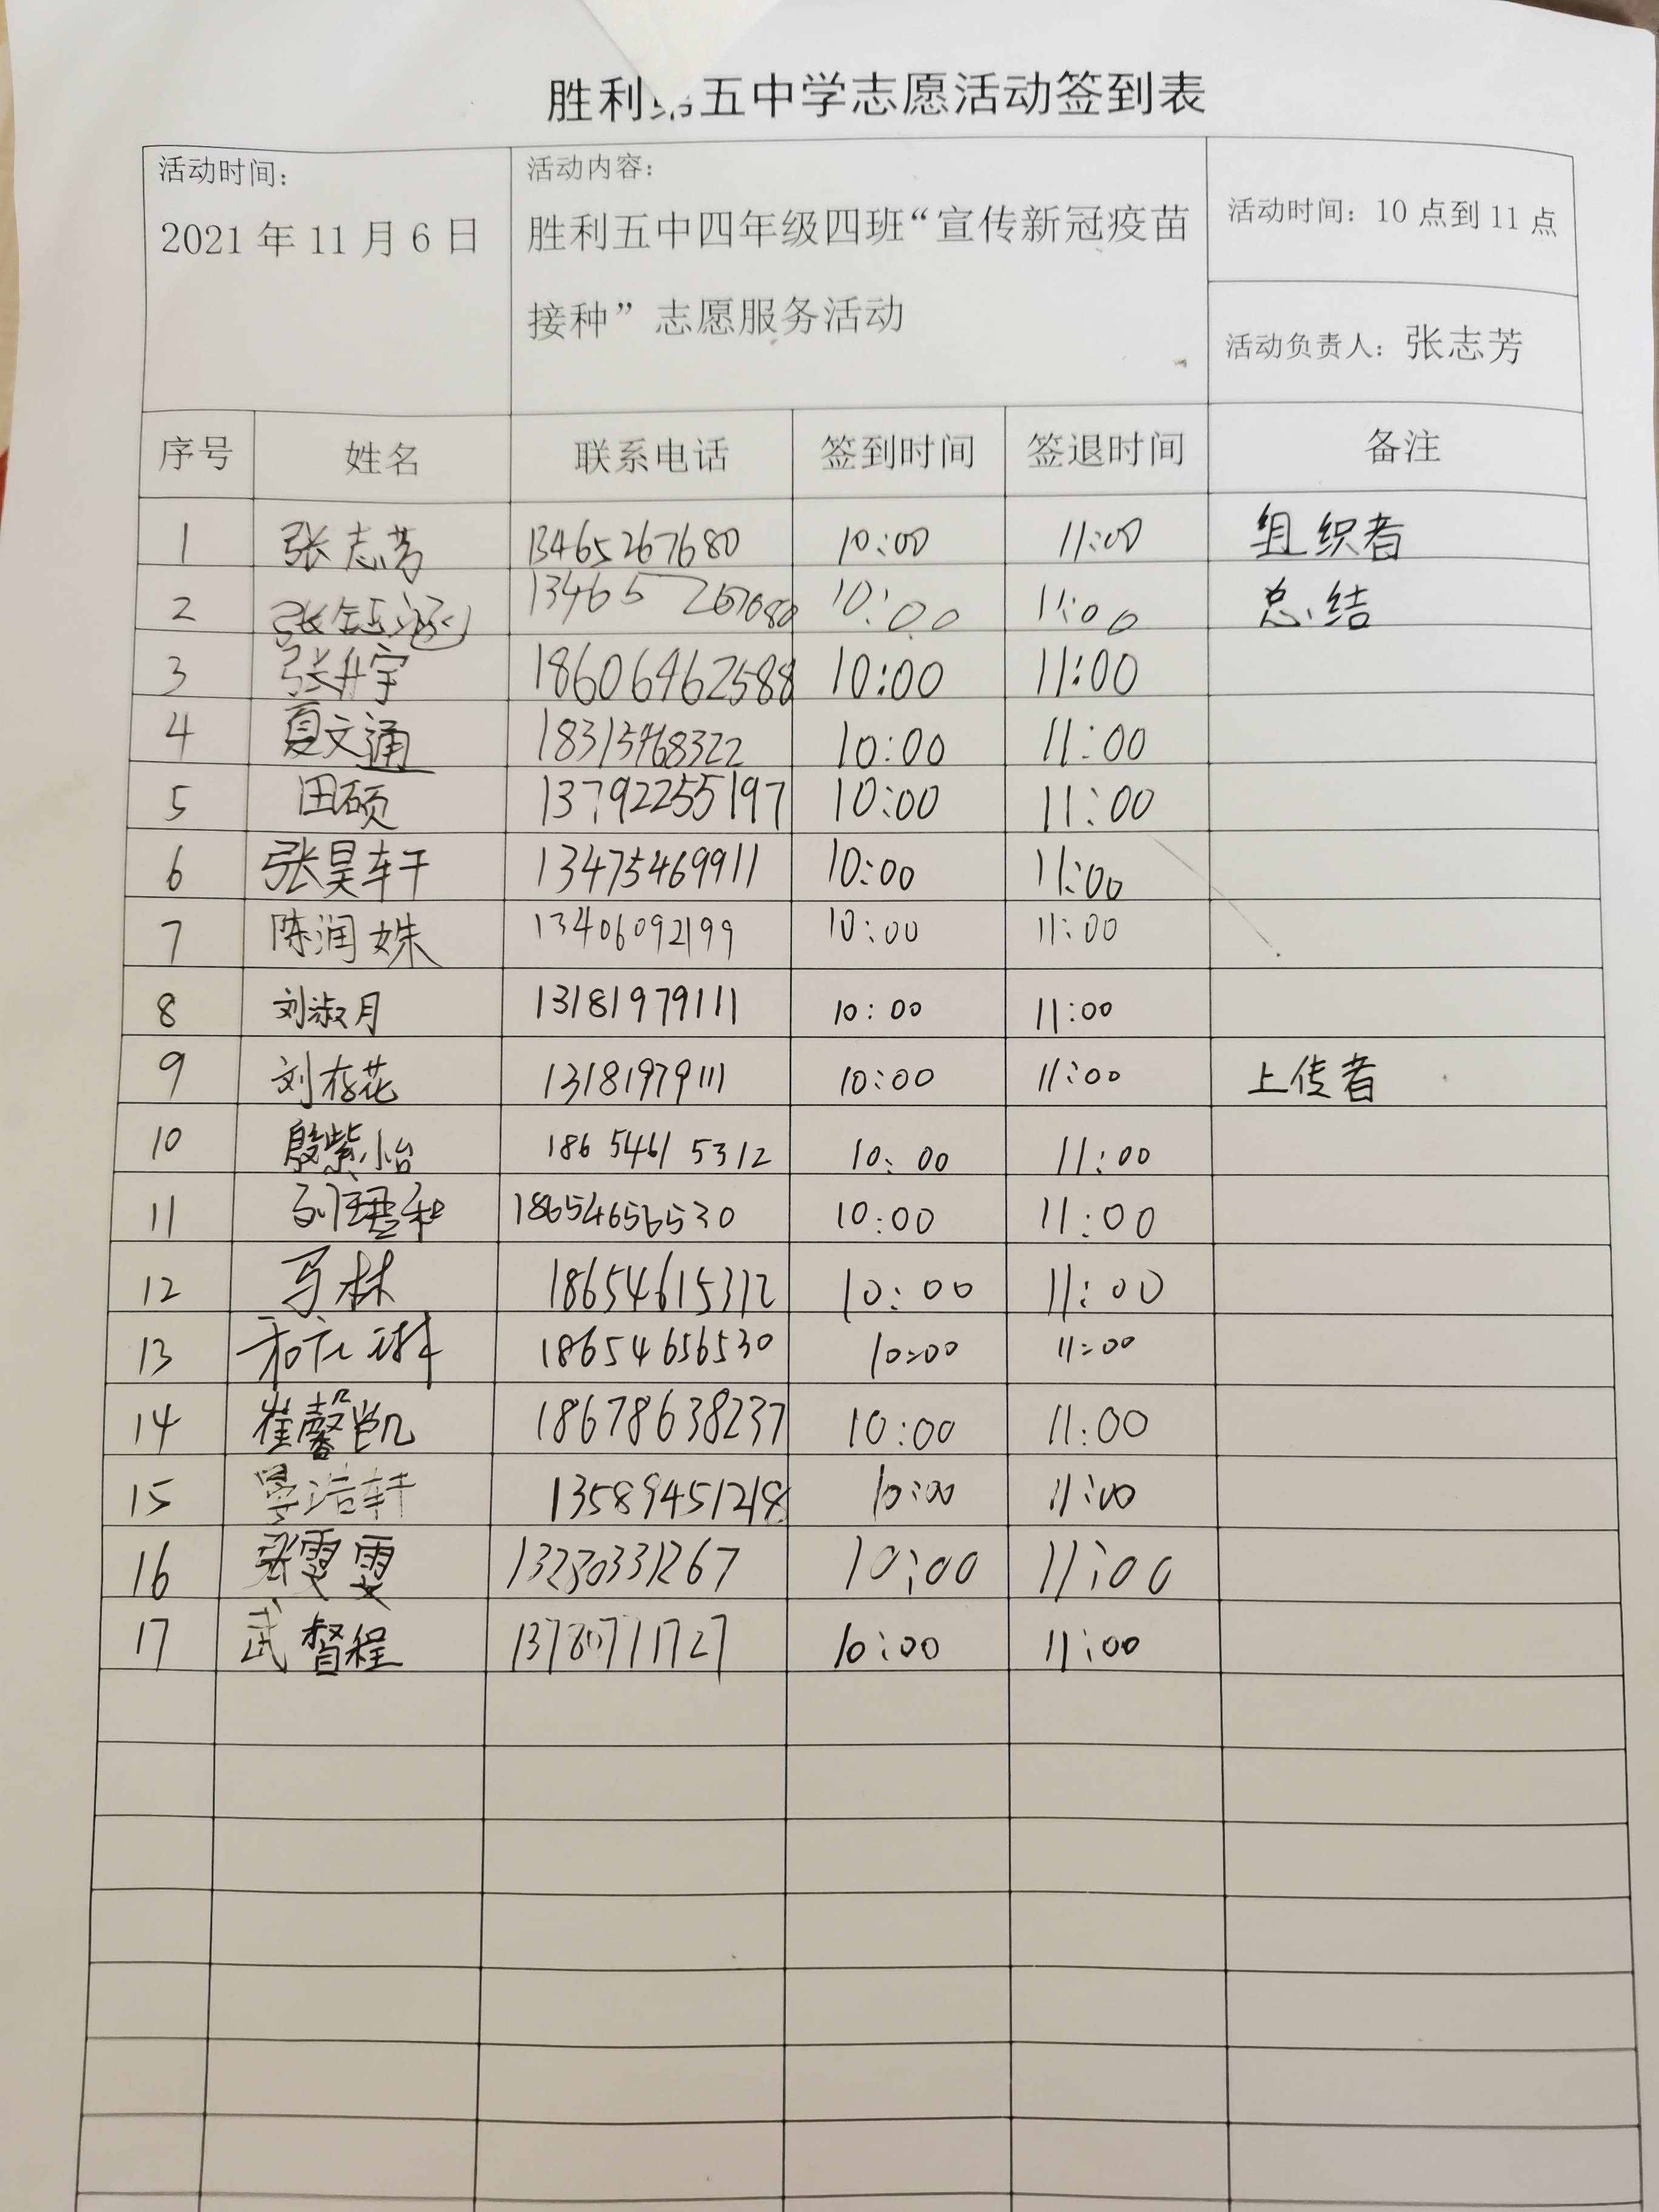 胜利第五中学志愿活动签到表
活动时间：
2021年11月6日
活动内容：
胜利五中四年级四班“宣传新冠疫苗
接种”志愿服务活动
活动时间：10点到11点
活动负责人：张志芳
序号 姓名 联系电话 签到时间 签退时间 备注
1 张志芳 13465267680 10:00 11:00 组织者
2 张钰涵 13465267680 10:00 11:00 总结
3 张升宇 18606462588 10:00 11:00
4 夏文通 18315468322 10:00 11:00
5 田硕 13792255197 10:00 11:00
6 张昊轩 13475469911 10:00 11:00
7 陈润姝 13406092199 10:00 11:00
8 刘淑月 13181979111 10:00 11:00
9 刘存花 13181979111 10:00 11:00 上传者
10 殷紫怡 186 5461 5312 10:00 11:00
11 18654656530 10:00 11:00
12 马林 18654615312 10:00 11:00
13 18654656530 10:00 11:00
14 崔馨凯 18678638237 10:00 11:00
15 浩轩 13589451218 10:00 11:00
16 张雯雯 13280331267 10:00 11:00
17 武督程 13780771727 10:00 11:00